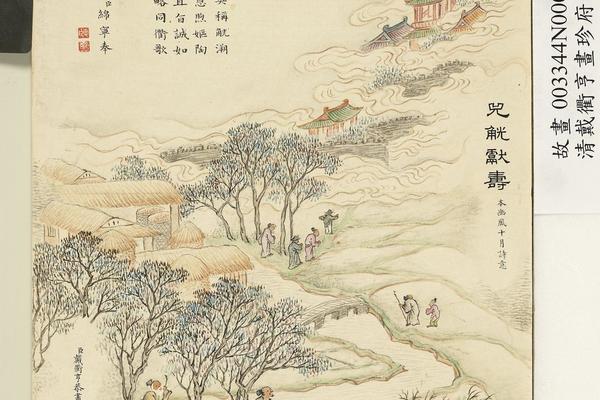 故畫 003344N00
清戴衢亨畫珍府
兕觥獻壽
本豳風十月詩意
稱觥溯
煦嫗陶
且百誠如
略同衢歌
臣綿寧奉
臣戴衢亨恭畫